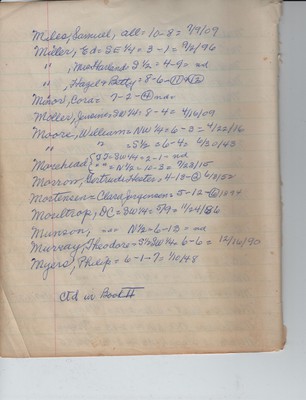 Miles, Samuel, all = 10-8 = 7/9/09
Miller, Ed = SE¼ = 3-1 = 9/2/96
" , Mrs Harland = S½ = 4-9 = nd
" , Hazel & Betty = 8-6-①①②
Minor, Cora = 7-2-④ nd
Moller, = SW¼ = 8-4 = 4/14/09
Moore, William = NW¼ = 6-3 = 4/22/16
" " = S½ = 6-4 = 4/30/43
Morehead { JJ = SW¼ = 2-1 = nd
" " = N½ = 10-3 = 7/23/15
Morrow, Gertrude Hester, 4-13-② 6/3/52
Mortensen = Clara Jorgensen = 5-12-⑥
Moultrop, DC = SW¼ = 5/9 = 11/24/86
Munson, = N½ = 6-13 = nd
Murray, Theodore = SW¼ = 6-6 = 12/16/90
Myers, Philip = 6-1-7 = 1/10/48
Ctd in Book II